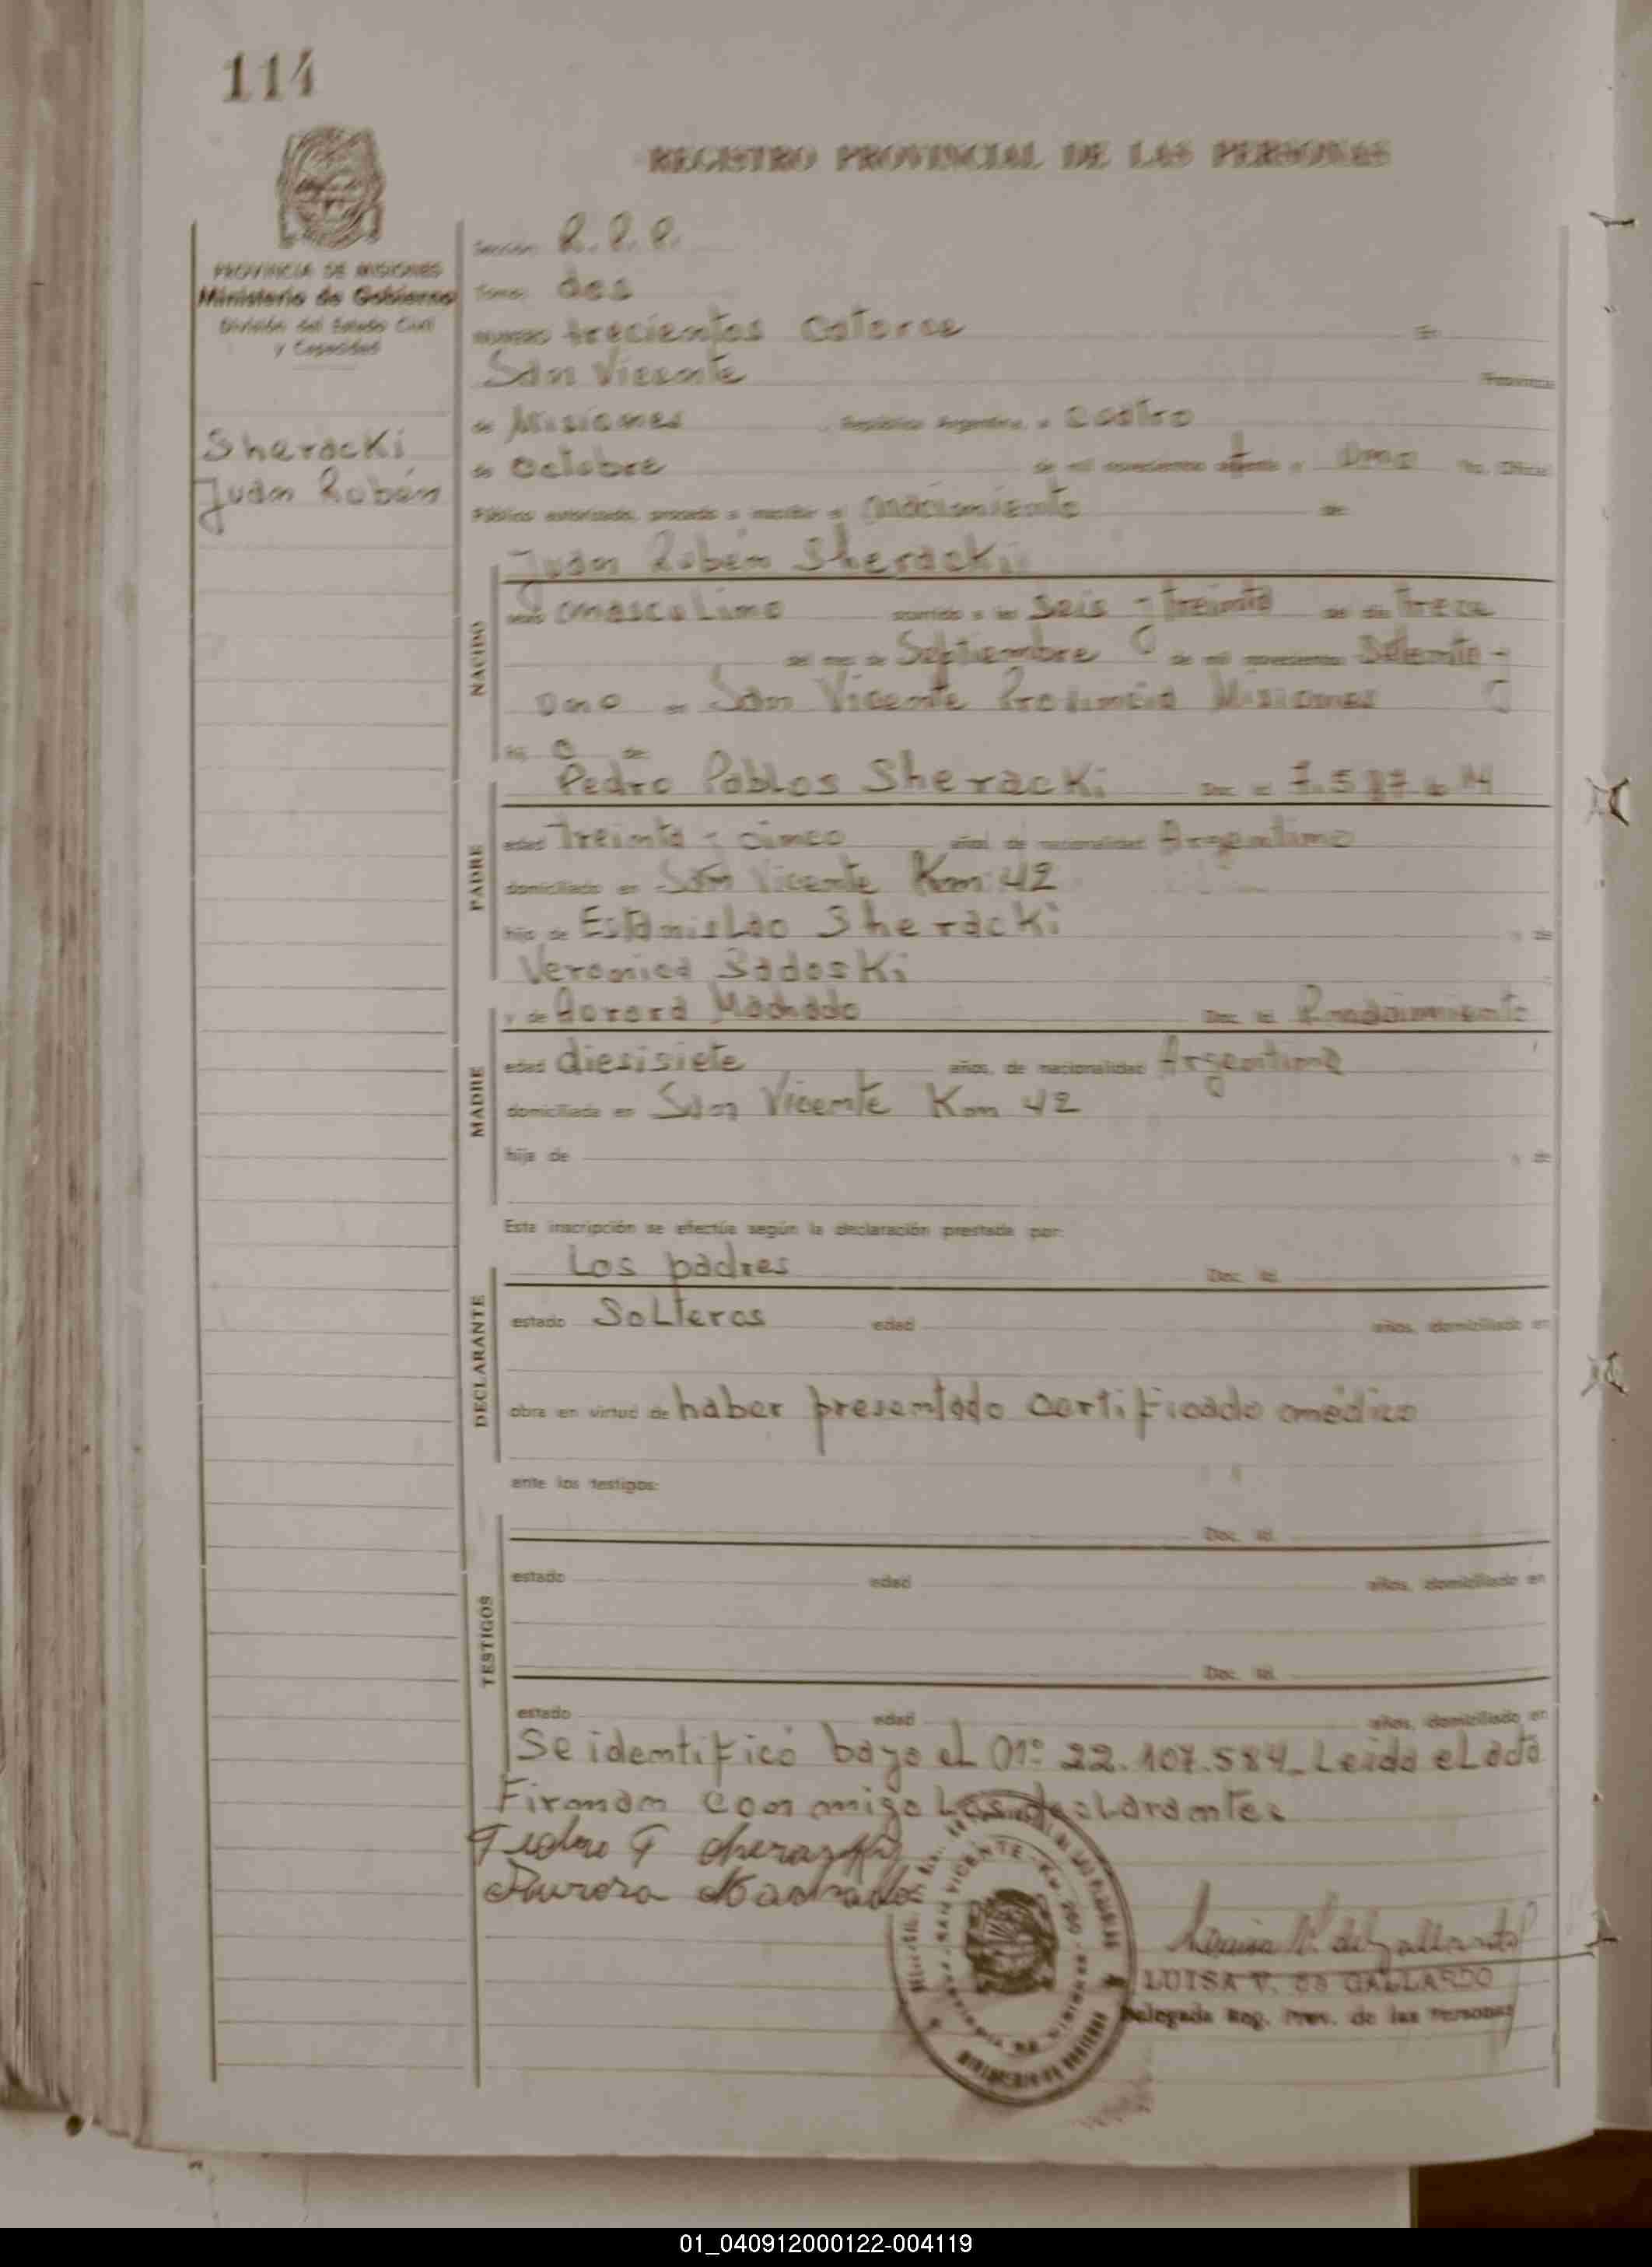 114
REGISTRO PROVINCIAL DE LAS PERSONAS
PROVINCIA DE MISIONES
Ministerio de Gobierno
División del Estado Civil
y Capacidad
Sheracki
Juan Rubén
Sección R.P.P.
Tomo dos
número trecientos catorce En
San Vicente Provincia
de Misiones República Argentina, a cuatro
de Octubre de mil novecientos setenta y uno Yo, Oficial
Público autorizado, procedo a inscribir el nacimiento de:
NACIDO
Juan Rubén Sheracki
sexo masculino ocurrido a las seis y treinta del día trece
del mes de Septiembre de mil novecientos setenta y
uno en San Vicente Provincia Misiones
hij o de
PADRE
Pedro Poblos Sheracki Doc. Id.
edad Treinta y cinco años, de nacionalidad Argentino
domiciliado en San Vicente Km 42
hijo de Estanislao Sheracki y de
Veronica Sadoski
MADRE
y de Aurora Machado Doc. Id.
edad diesisiete años, de nacionalidad Argentina
domiciliada en San Vicente Km 42
hija de y de
Esta inscripción se efectúa según la declaración prestada por:
DECLARANTE
Los padres Doc. Id.
estado Solteros edad años, domiciliado en
obra en virtud de haber presentado certificado médico
ante los testigos:
TESTIGOS
Doc. Id.
estado edad años, domiciliado en
Doc. Id.
estado edad años, domiciliado en
Se identificó bajo el Nº 22.107.584_ Leida el acta
Firman con migo Los declarantes
Pedro P Sheracki
Aurora Machado
SAN VICENTE
LUISA V. de GALLARDO
Delegada Reg. Prov. de las Personas
01_040912000122-004119